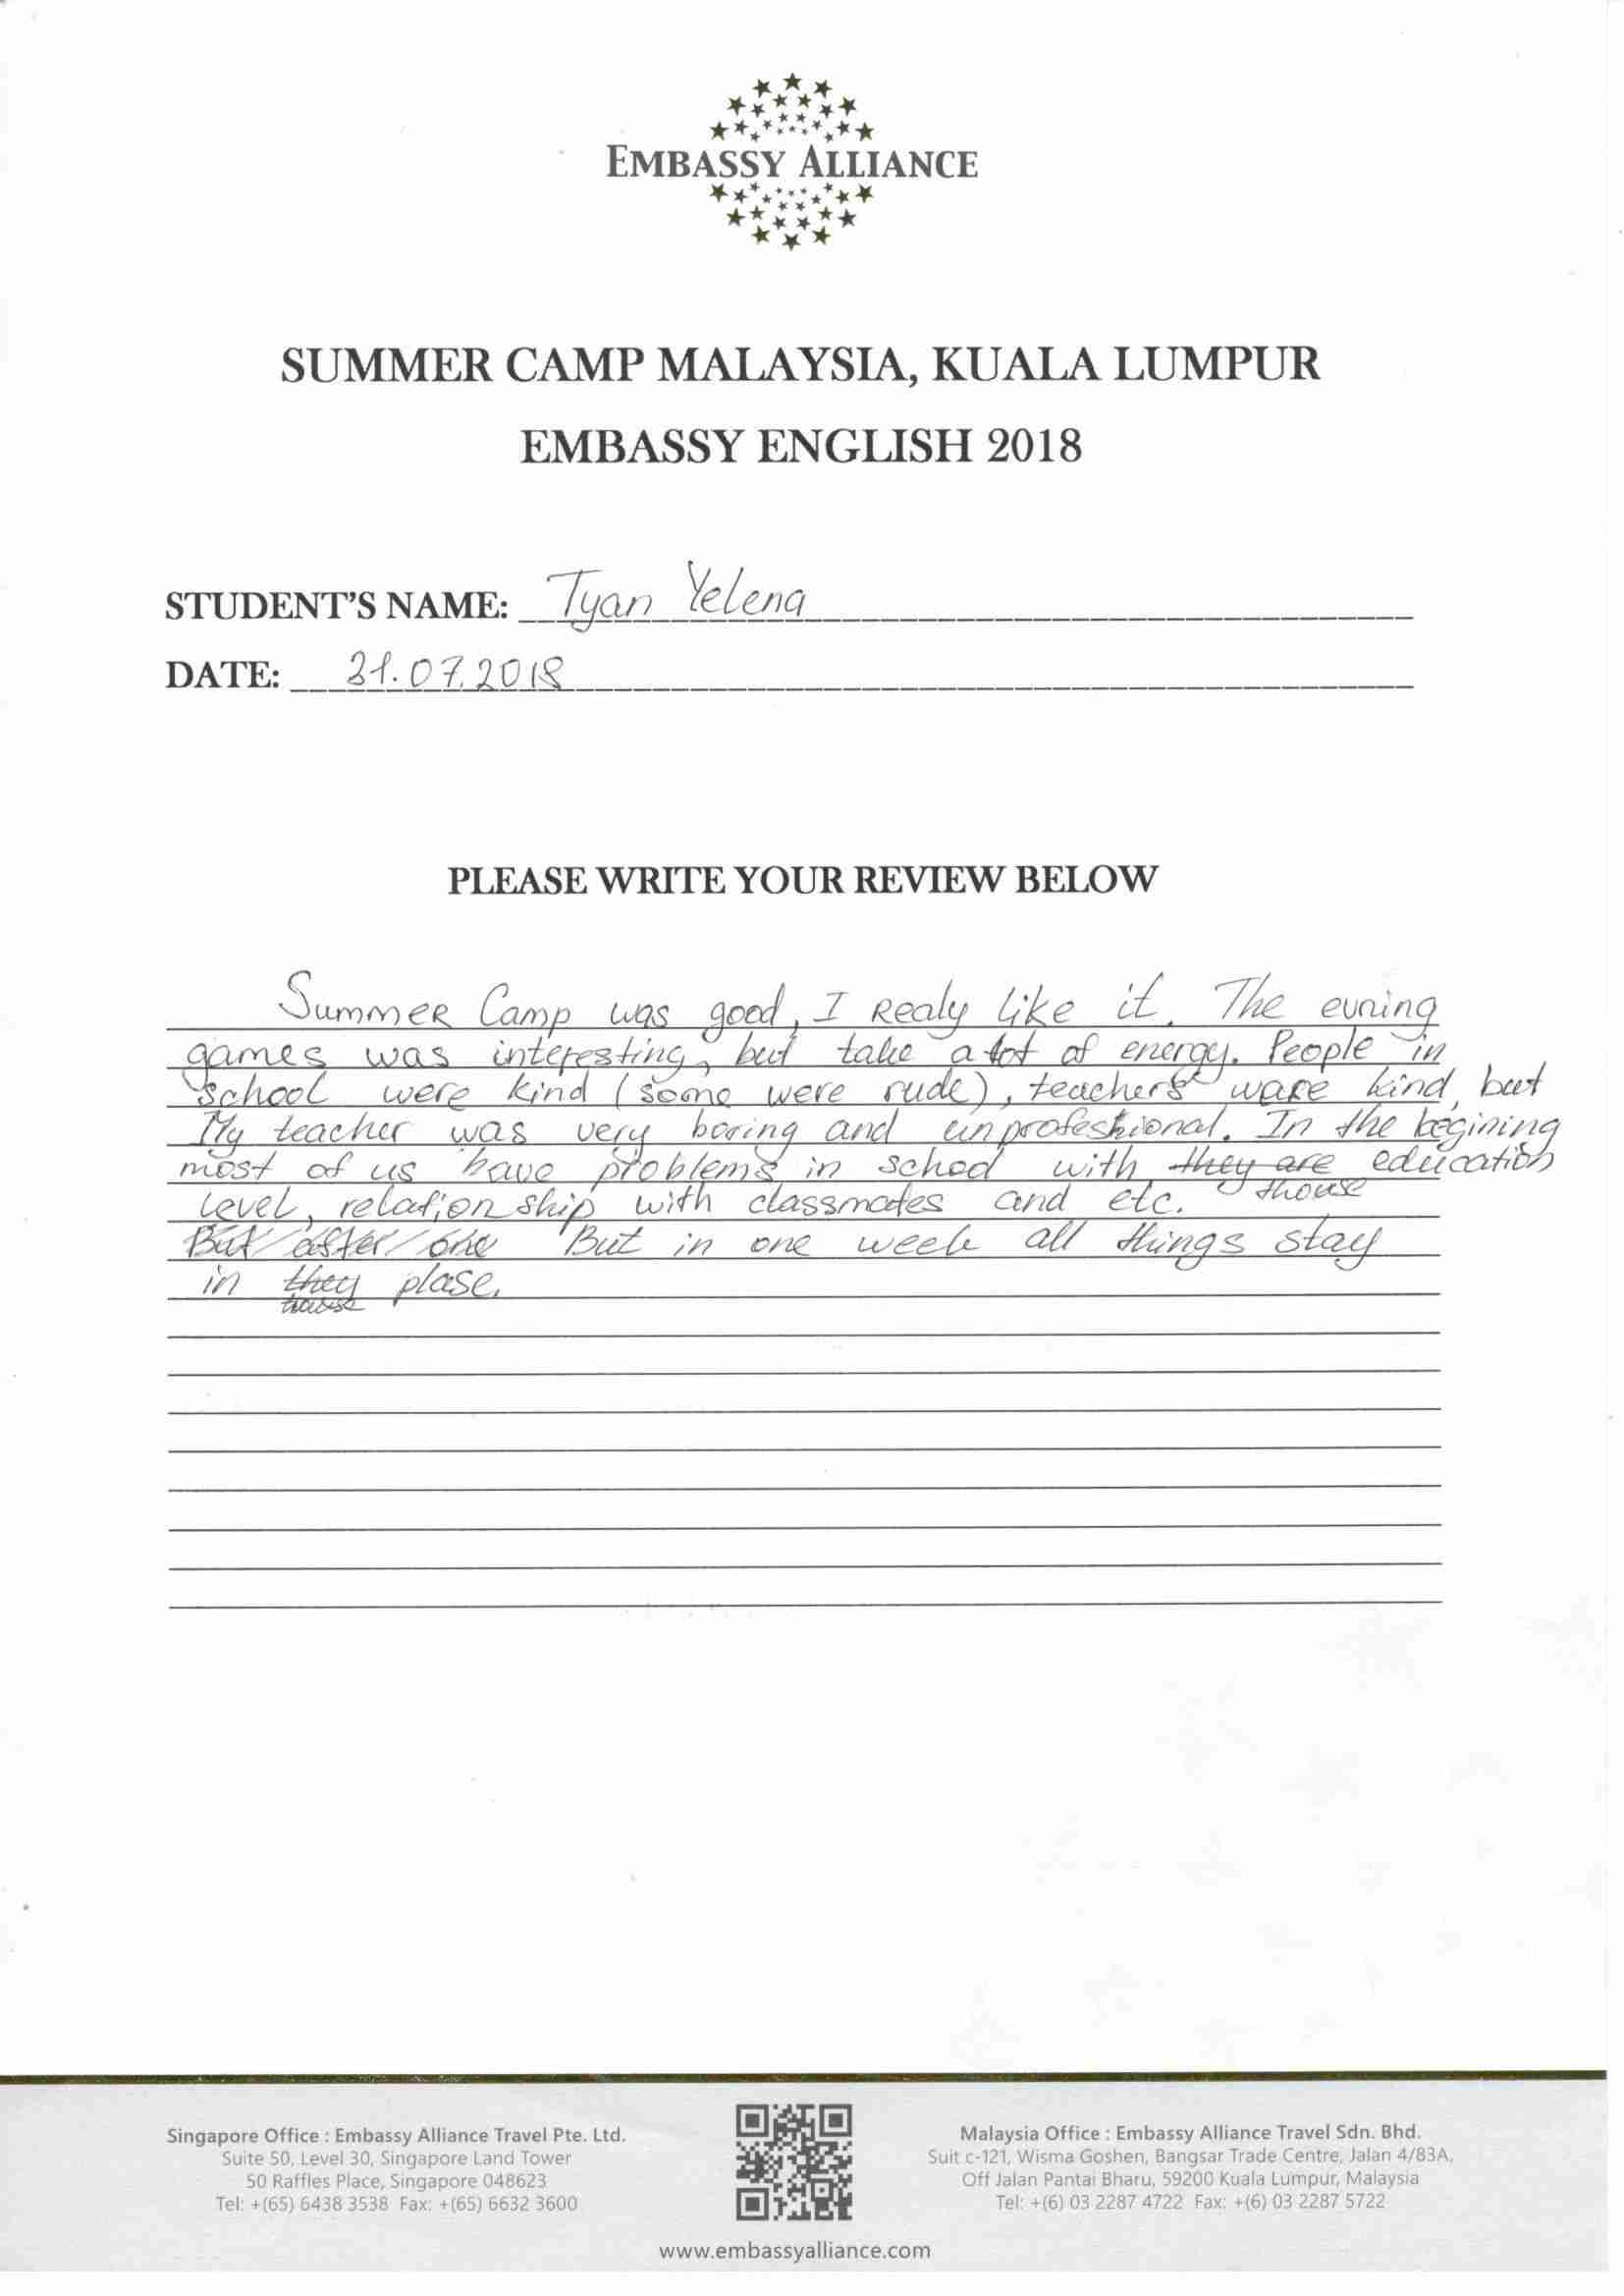 EMBASSY ALLIANCE
SUMMER CAMP MALAYSIA, KUALA LUMPUR
EMBASSY ENGLISH 2018
STUDENT'S NAME: Tyan Yelena
DATE: 31.07.2018
PLEASE WRITE YOUR REVIEW BELOW
Summer Camp was good, I Realy like it. The evning
games was interesting, but take a lot of energy. People in
school were kind (some were rude), teachers ware kind, but
My teacher was very boring and unprofeshional. In the begining
most of us have problems in school with they are education
thouse
level, relationship with classmates and etc.
But after one But in one week all things stay
in they plase.
thouse
Singapore Office : Embassy Alliance Travel Pte. Ltd.
Suite 50, Level 30, Singapore Land Tower
50 Raffles Place, Singapore 048623
Tel: +(65) 6438 3538 Fax: +(65) 6632 3600
Malaysia Office : Embassy Alliance Travel Sdn. Bhd.
Suit c-121, Wisma Goshen, Bangsar Trade Centre, Jalan 4/83A,
Off Jalan Pantai Bharu, 59200 Kuala Lumpur, Malaysia
Tel: +(6) 03 2287 4722 Fax: +(6) 03 2287 5722
www.embassyalliance.com